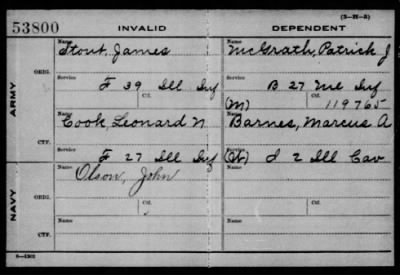 (3—21—3)
53800 INVALID DEPENDENT
Name Name
Stout, James McGrath, Patrick J
ARMY ORIG. Service Service
F 39 Ill Inf B 27 Me Inf
Ctf. (M) 119765
Name Name
Cook, Leonard N Barnes, Marcus A
CTF. Service Service
F 27 Ill Inf (W) I 2 Ill Cav
NAVY Name Name
Olson, John
ORIG. Service Ctf.
Name Name
CTF. Service Service
6—1302